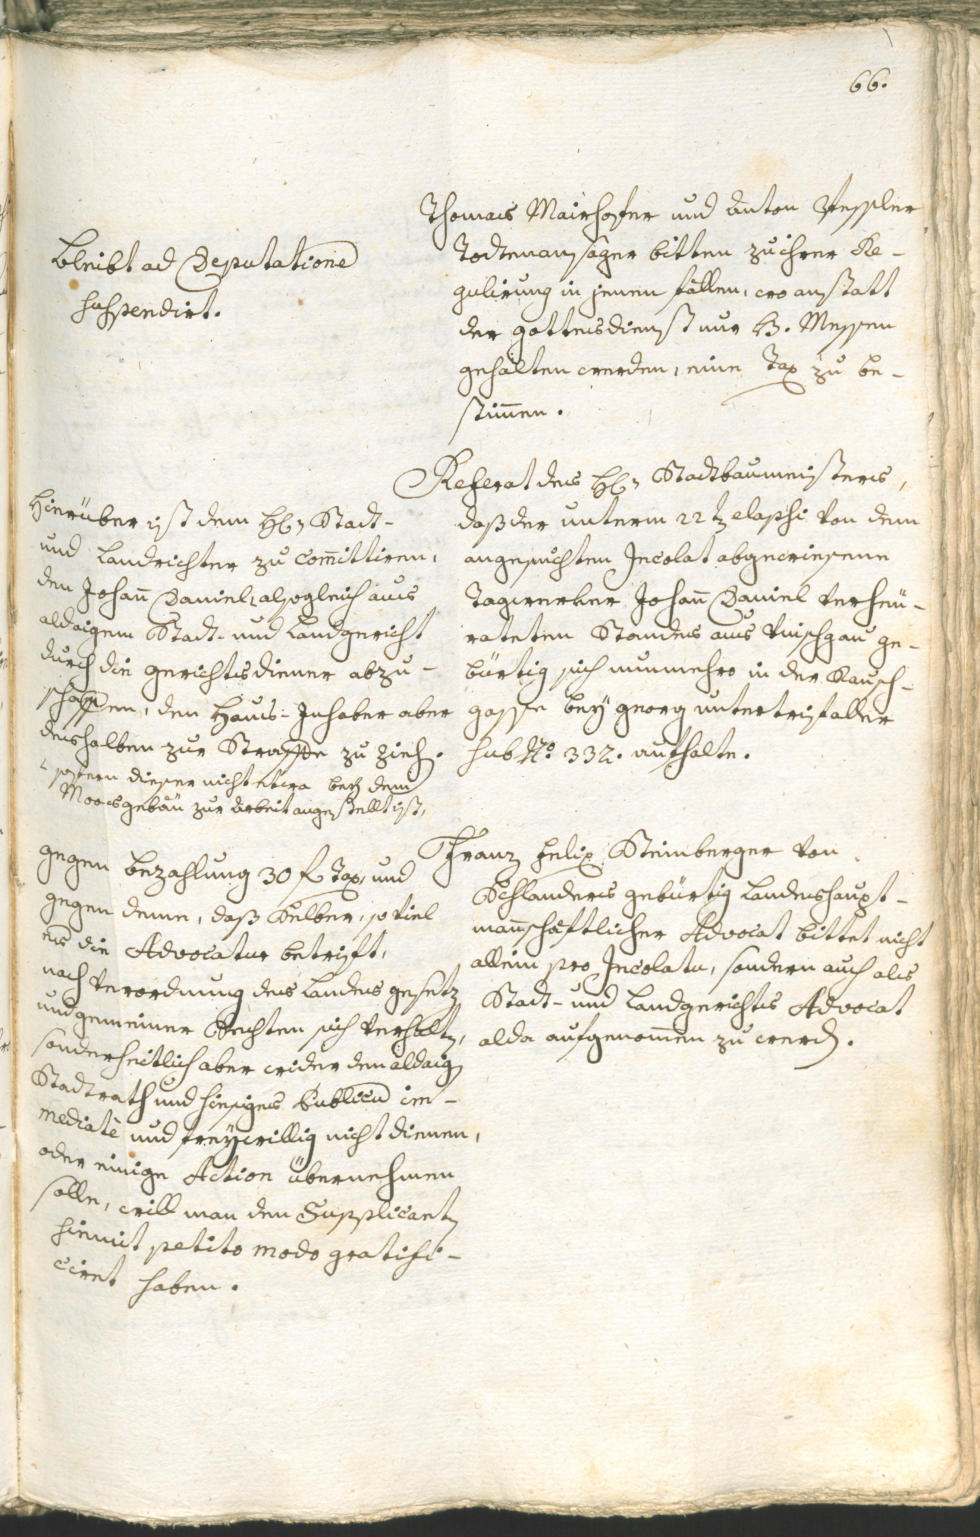 66.
Thomas Mairhofer und Anton
Todtenansager bitten zu ihrer Re-
gulirung in jenen fällen, wo anstatt
der gottesdienst nur H. Messen
gehalten werden, eine Tax zu be-
stim̄en.
Bleibt ad Deputatione
suspendirt.
Referat des H: Stadtbaumeisters,
daß der unterm 22tẽ elapsi von dem
angesuchten Incolat abgewiesene
Tagwerker Johañ Daniel verheü-
rateten Standes aus Vinschgau ge-
bürtig sich nunmehro in der Rausch-
gasse beÿ georg untertrifaller
sub No. 332. aufhalte.
Hierüber ist dem H: Stadt-
und Landrichter zu com̄ittiren,
den Johañ Daniel, alsogleich aus
aldaigem Stadt- und Landgericht
durch die gerichtsdiener abzu-
schaffen, den Haus-Inhaber aber
deshalben zur Straffe zu zieh.
sofern dieser nicht etwa beÿ dem
Moosgebäu zur Arbeit angestellt ist,
Franz Felix Steinberger von
Schlanders gebürtig Landeshaupt-
man̄schaftlicher Advocat bittet nicht
allein pro Incolatu, sondern auch als
Stadt- und Landgerichts Advocat
alda aufgenom̄en zu werd.
gegen Bezahlung 30 f Tax, und
gegen deme, daß Selber, so viel
es die Advocatur betrift,
nach Verordnung des Landes gesetz
und gemeiner Rechten sich verhaltẽ,
sonderheitlich aber wider den aldaigẽ
Stadtrath und hiesiges Publicũ im-
mediatè und freÿwillig nicht dienen,
oder einige Action übernehmen
solle, will man den Supplicantẽ
hiemit petito modo gratifi-
ciret haben.